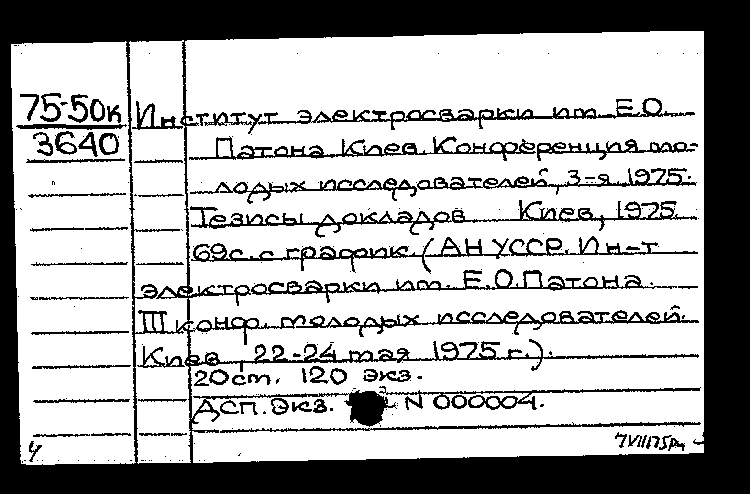 75-50к Институт электросварки им. Е.О.
3640 Патона Киев. Конференция мо-
лодых исследователей, 3-я 1975.
Тезисы докладов Киев, 1975
69с. с график. (АН УССР. Ин-т
электросварки им. Е.О. Патона.
III конф. молодых исследователей.
Киев, 22-24 мая 1975 г.).
20см. 120 экз.
ДСП. Экз. N 000004.